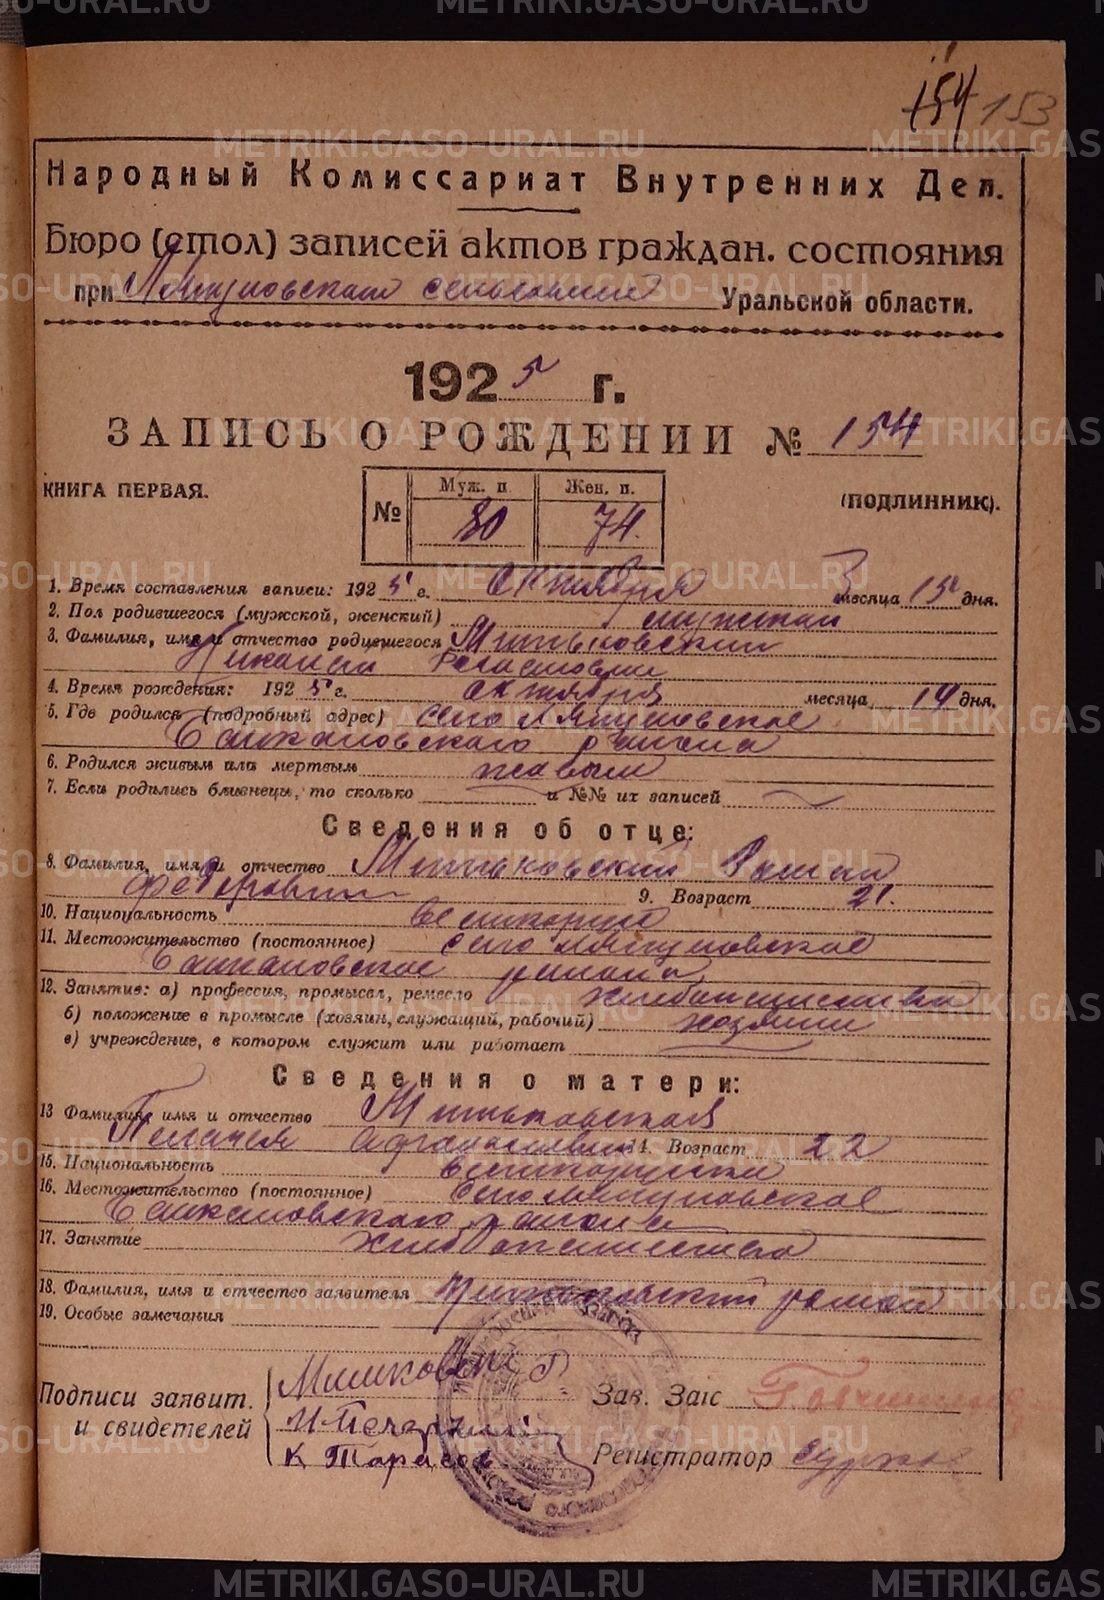 154 153
Народный Комиссариат Внутренних Дел.
Бюро (стол) записей актов граждан. состояния
при Уральской области.
1925 г.
ЗАПИСЬ О РОЖДЕНИИ № 154
КНИГА ПЕРВАЯ.
(ПОДЛИННИК).
№ Муж. п Жен. п.
80 74.
1. Время составления записи: 1925 г. октября месяца 15 дня.
2. Пол родившегося (мужской, женский) мужской
3. Фамилия, имя и отчество родившегося Митьковский
4. Время рождения: 1925 г. октября месяца 14 дня.
5. Где родился (подробный адрес) село
района
6. Родился живым или мертвым живым
7. Если родились близнецы, то сколько и №№ их записей
Сведения об отце:
8. Фамилия, имя и отчество Митьковский Роман
Федорович 9. Возраст 21.
10. Национальность великорус
11. Местожительство (постоянное) село
района
12. Занятие: а) профессия, промысел, ремесло хлебопашество
б) положение в промысле (хозяин, служащий, рабочий) хозяин
в) учреждение, в котором служит или работает
Сведения о матери:
13 Фамилия, имя и отчество Митьковская
Пелагея Афанасьевна 14. Возраст 22
15. Национальность великорусска
16. Местожительство (постоянное) село
района
17. Занятие хлебопашество
18. Фамилия, имя и отчество заявителя Митьковский Роман
19. Особые замечания
Подписи заявит.
и свидетелей
Р
И.
К Тарасов
Зав. Загс
Регистратор
METRIKI.GASO-URAL.RU